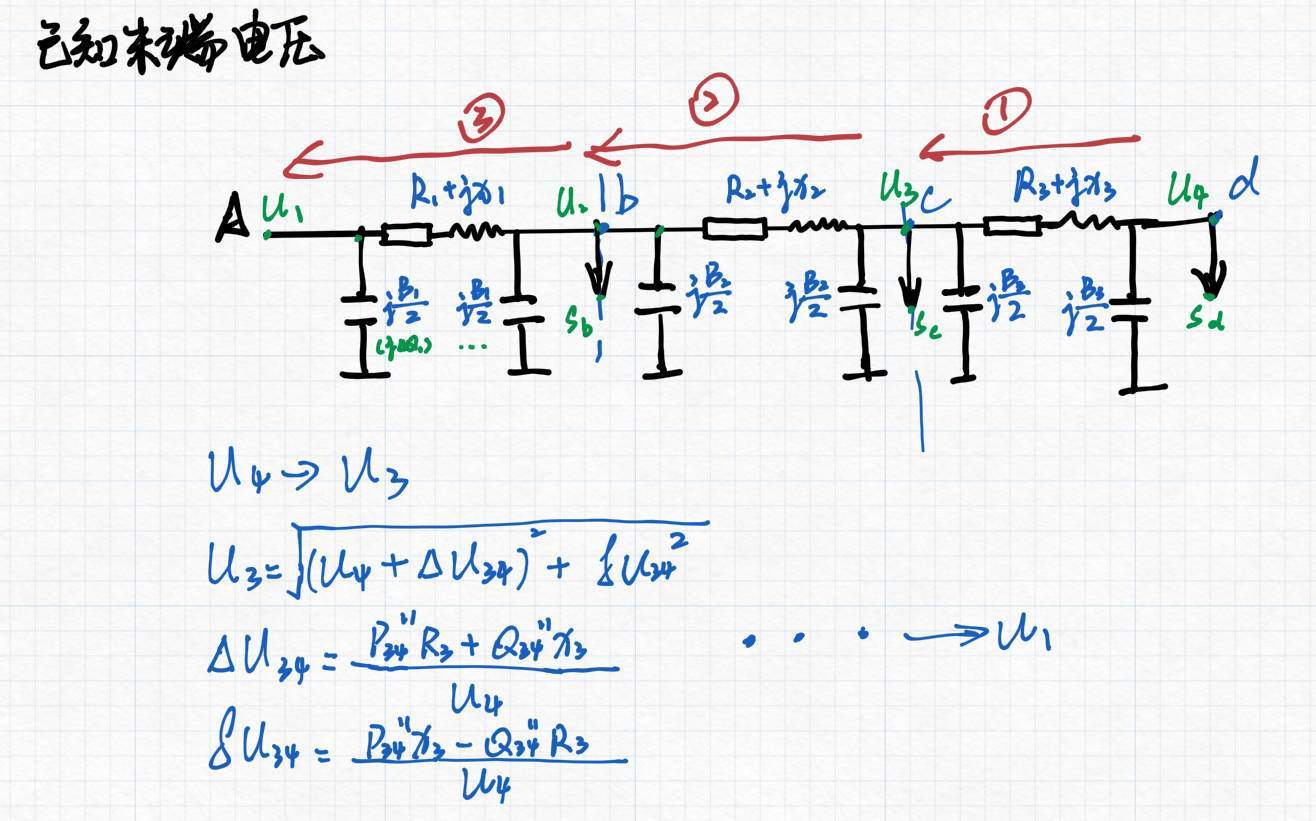 已知末端电压
③ ② ①
A U₁ R₁+jx₁ U₂ b R₂+jx₂ U₃ c R₃+jx₃ U₄ d
jB₁/2 jB₁/2 Sb jB₂/2 jB₂/2 Sc jB₃/2 jB₃/2 Sd
...
U₄→U₃
U₃=√((U₄+ΔU₃₄)²+δU₃₄²)
ΔU₃₄=(P₃₄''R₃+Q₃₄''x₃)/U₄ ···→U₁
δU₃₄=(P₃₄''x₃-Q₃₄''R₃)/U₄